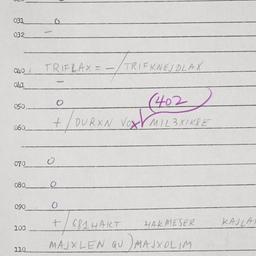 031 0
032 —
040 TRIFLAX = — / TRIFKNEJDLAX
041 —
050 0 (402
060 + / DURXN VOX MIL3XIKBE
070 0
080 0
090 0
100 + / 681HAKT HAKMESER
110 MAJXLEN GU) MAJXDLIM